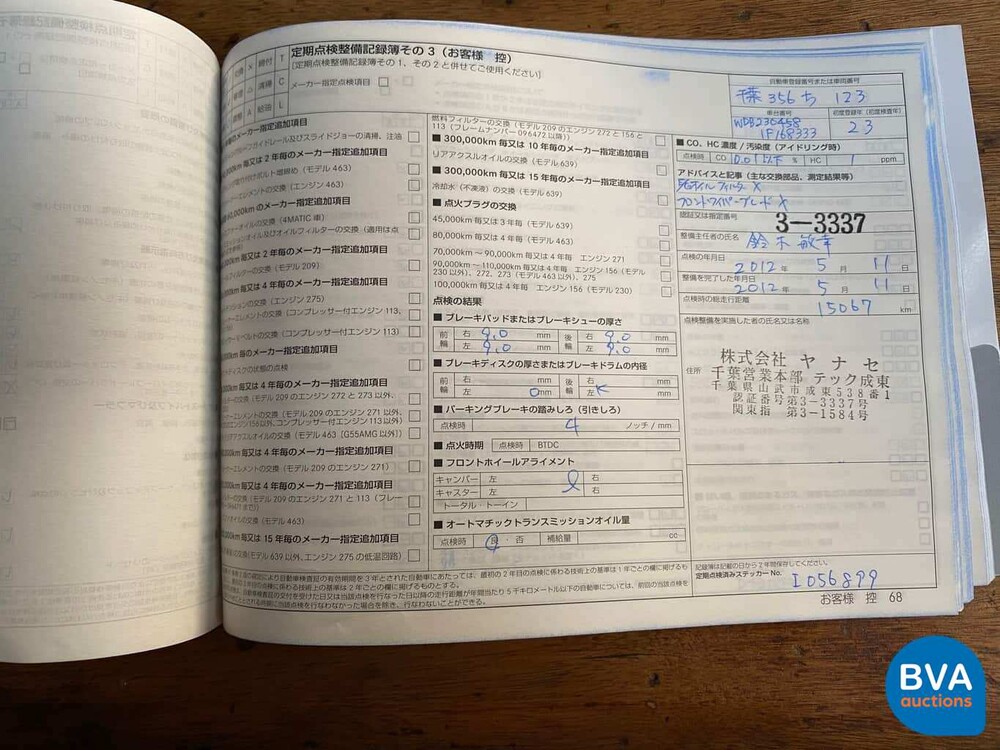 定期点検整備記録簿その3（お客様 控）
[定期点検整備記録簿その1、その2と併せてご使用ください]
メーカー指定点検項目
交換 × 締付 T
清掃 C
給油 L
毎のメーカー指定追加項目
ガイドレール及びスライドジョーの清掃、注油
毎又は2年毎のメーカー指定追加項目
(モデル463)
ーエレメントの交換（エンジン463）
km毎のメーカー指定追加項目
オイルの交換（4MATIC車）
オイル及びオイルフィルターの交換（適用は点
毎又は2年毎のメーカー指定追加項目
フィルターの交換（モデル209）
km毎又は4年毎のメーカー指定追加項目
の交換（エンジン275）
エレメントの交換（コンプレッサー付エンジン113、
ベルトの交換（コンプレッサー付エンジン113）
km毎のメーカー指定追加項目
の状態の点検
km毎又は4年毎のメーカー指定追加項目
の交換（モデル209のエンジン272と273以外、
ーエレメントの交換（モデル209のエンジン271以外、
エンジン156以外、コンプレッサー付エンジン113以外）
リアアクスルオイルの交換（モデル463［G55AMG以外］）
km毎又は4年毎のメーカー指定追加項目
ーエレメントの交換（モデル209のエンジン271）
km毎又は4年毎のメーカー指定追加項目
の交換（モデル209のエンジン271と113（フレー
オイルの交換（モデル463）
km毎又は15年毎のメーカー指定追加項目
(モデル639以外、エンジン275の低温回路）
燃料フィルターの交換（モデル209のエンジン272と156と
113（フレームナンバー096472以降））
■300,000km毎又は10年毎のメーカー指定追加項目
リアアクスルオイルの交換（モデル639）
■300,000km毎又は15年毎のメーカー指定追加項目
冷却水（不凍液）の交換（モデル639）
■点火プラグの交換
45,000km毎又は3年毎（モデル639）
80,000km毎又は4年毎（モデル463）
70,000km～90,000km毎又は4年毎 エンジン271
90,000km～110,000km毎又は4年毎 エンジン156（モデル
230以外）、272、273（モデル463以外）、275
100,000km毎又は4年毎 エンジン156（モデル230）
点検の結果
■ブレーキパッドまたはブレーキシューの厚さ
前輪 右 9.0 mm 後輪 右 9.0 mm
左 9.0 mm 左 9.0 mm
■ブレーキディスクの厚さまたはブレーキドラムの内径
前輪 右 mm 後輪 右 mm
左 0 mm 左 K mm
■パーキングブレーキの踏みしろ（引きしろ）
点検時 4 ノッチ / mm
■点火時期 点検時 BTDC
■フロントホイールアライメント
キャンバー 左 右
キャスター 左 右
トータル・トーイン
■オートマチックトランスミッションオイル量
点検時 良・否 補給量 cc
自動車登録番号または車両番号
千葉 356 ち 123
車台番号
WDB230458
1F168333
初度登録年（初度検査年）
23
■CO、HC濃度／汚染度（アイドリング時）
点検時 CO 0.01以下 % HC 1 ppm
アドバイスと記事（主な交換部品、測定結果等）
オイルフィルター X
フロントワイパーブレード X
認証又は指定番号
3-3337
整備主任者の氏名
鈴木 敏幸
点検の年月日
2012 年 5 月 11 日
整備を完了した年月日
2012 年 5 月 11 日
点検時の総走行距離
15067 km
点検整備を実施した者の氏名又は名称
住所
株式会社 ヤナセ
千葉営業本部 テック成東
千葉県山武市成東538番1
認証番号第3-3337号
関東指 第3-1584号
記録簿は記載の日から2年間保存してください。
定期点検済みステッカーNo. I056899
お客様 控 68
BVA
auctions